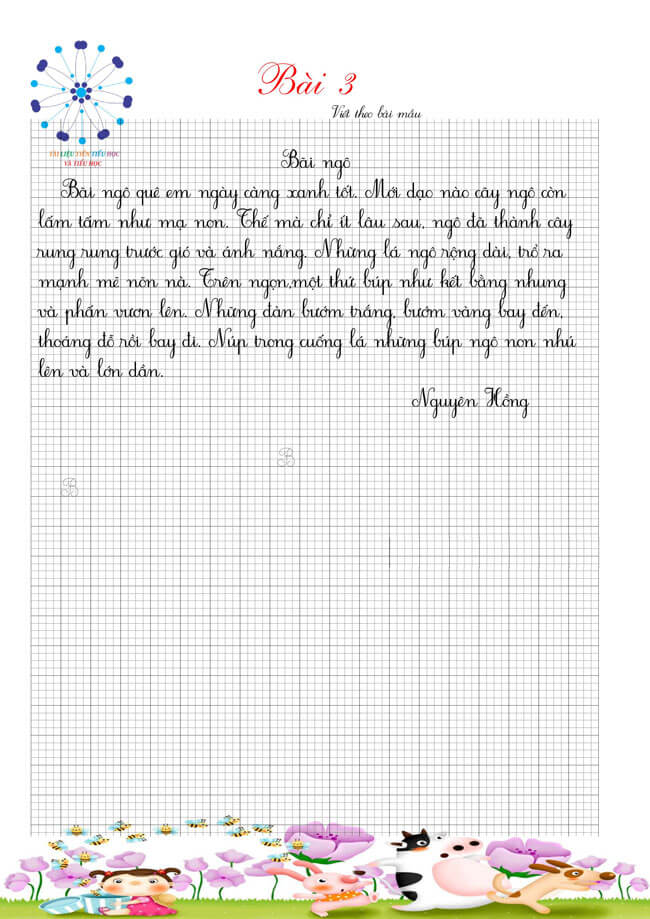 Bài 3
Viết theo bài mẫu
TÀI LIỆU TIỀN TIỂU HỌC
VÀ TIỂU HỌC
Bãi ngô
Bãi ngô quê em ngày càng xanh tốt. Mới dạo nào cây ngô còn
lấm tấm như mạ non. Thế mà chỉ ít lâu sau, ngô đã thành cây
rung rung trước gió và ánh nắng. Những lá ngô rộng dài, trổ ra
mạnh mẽ nõn nà. Trên ngọn,một thứ búp như kết bằng nhung
và phấn vươn lên. Những đàn bướm trắng, bướm vàng bay đến,
thoáng đỗ rồi bay đi. Núp trong cuống lá những búp ngô non nhú
lên và lớn dần.
Nguyên Hồng
B
B